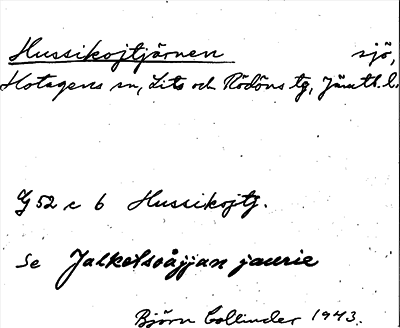 Hussikojtjärnen sjö,
Hotagens sn, Lits och Rödöns tg, Jämtl. l.
G 52 c 6 Hussikojtj.
Se Jalkelsoåjjan jaurie
Björn Collinder 1943.